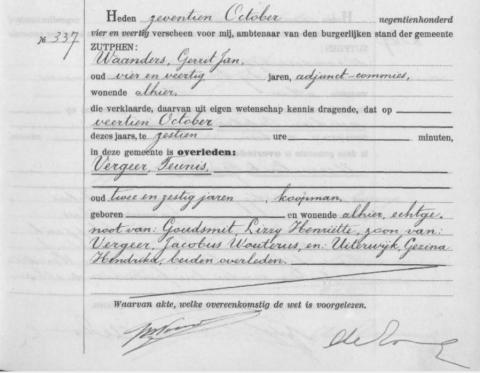 Heden zeventien October negentienhonderd
№ 337
vier en veertig verscheen voor mij, ambtenaar van den burgerlijken stand der gemeente
ZUTPHEN:
Waanders, Gerrit Jan,
oud vier en veertig jaren, adjunct-commies,
wonende alhier,
die verklaarde, daarvan uit eigen wetenschap kennis dragende, dat op
veertien October
dezes jaars, te zestien ure minuten,
in deze gemeente is overleden:
Vergeer, Teunis,
oud twee en zestig jaren, koopman,
geboren en wonende alhier, echtge-
noot van: Goudsmit, Lizzy Henriëtte, zoon van:
Vergeer, Jacobus Wouterus, en: Uiterwijk, Gezina
Hendrika, beiden overleden.
Waarvan akte, welke overeenkomstig de wet is voorgelezen.